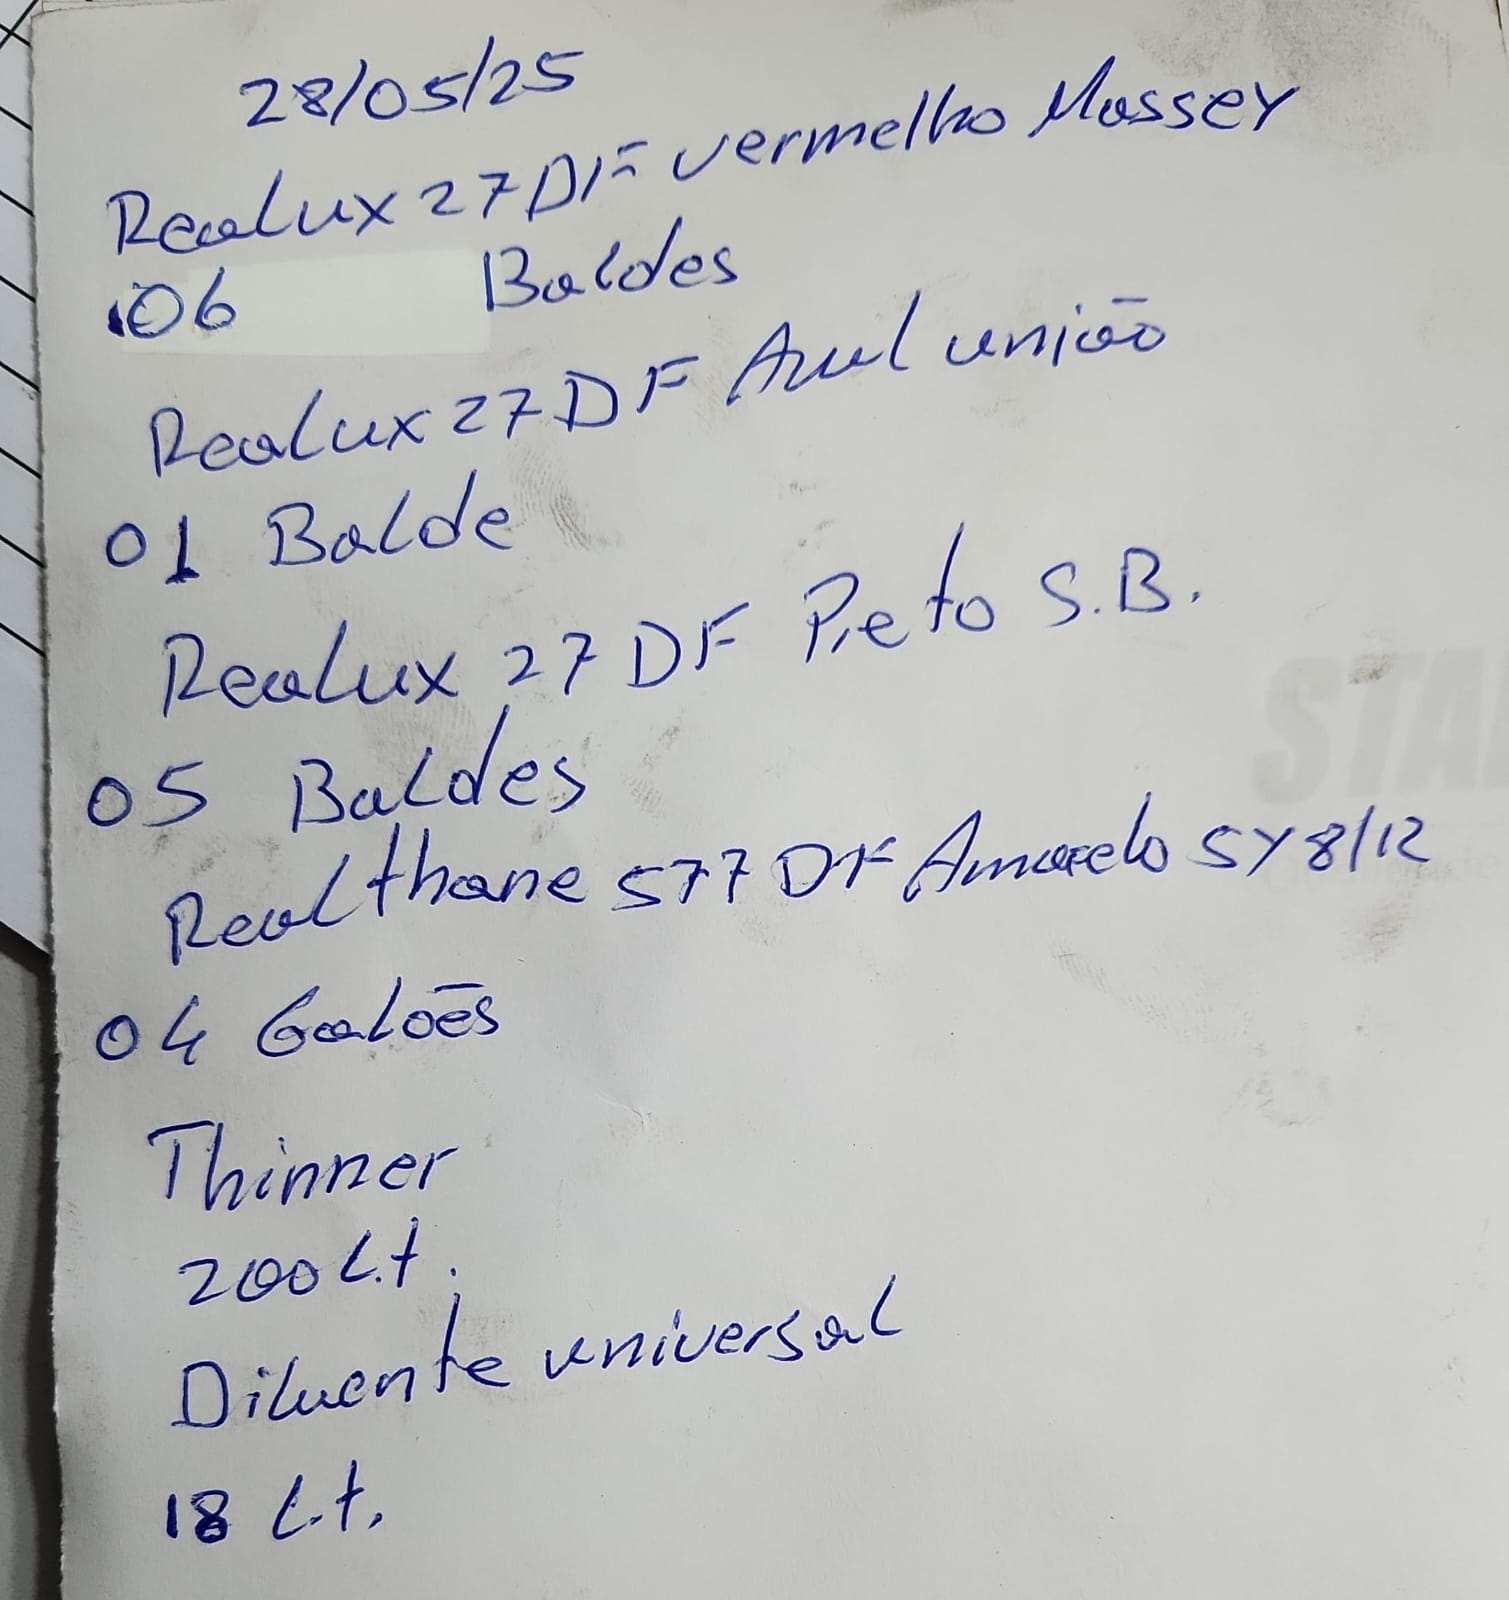 28/05/25
Realux 27 DF vermelho Massey
06 Baldes
Realux 27 DF Azul união
01 Balde
Realux 27 DF Preto S.B.
05 Baldes
Realthane 577 DF Amarelo 5Y 8/12
04 Galões
Thinner
200 L.t.
Diluente universal
18 L.t.
STA